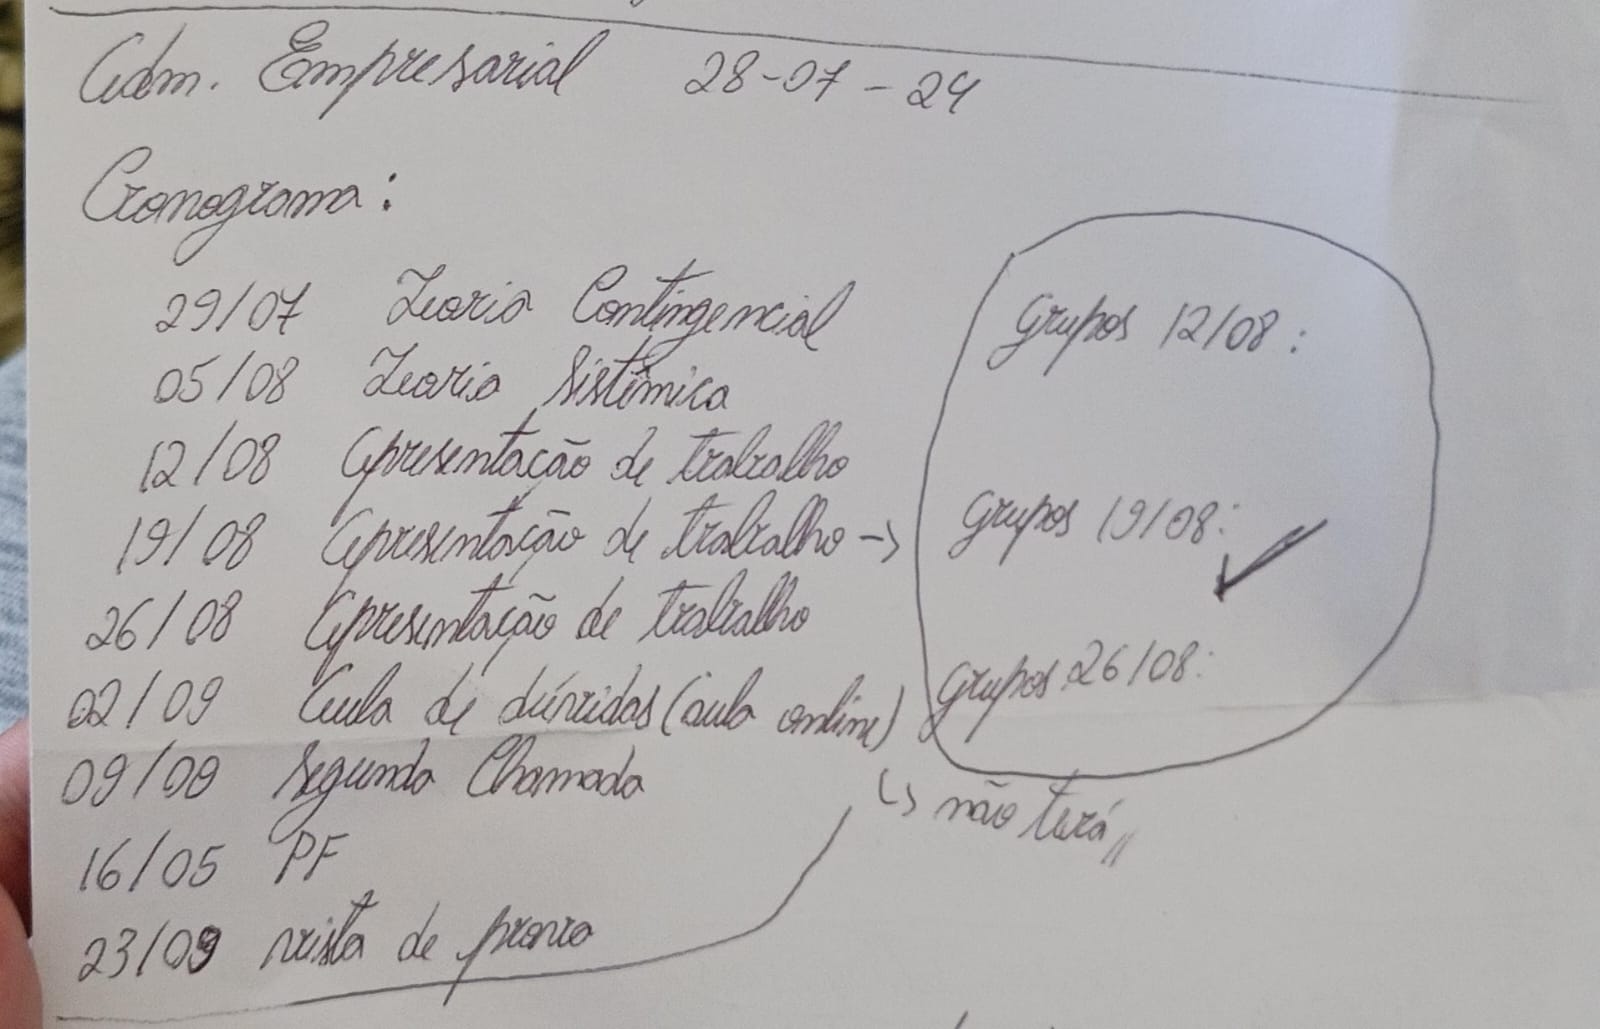 Adm. Empresarial 28-07-24
Cronograma:
29/07 Teoria Contingencial
05/08 Teoria Sistêmica
12/08 Apresentação de trabalho
19/08 Apresentação de trabalho ->
26/08 Apresentação de trabalho
02/09 Aula de dúvidas (aula online)
↳ não terá,,
09/09 Segunda Chamada
16/05 PF
23/09 vista de prova
Grupos 12/08:
Grupos 19/08:
✓
Grupos 26/08: